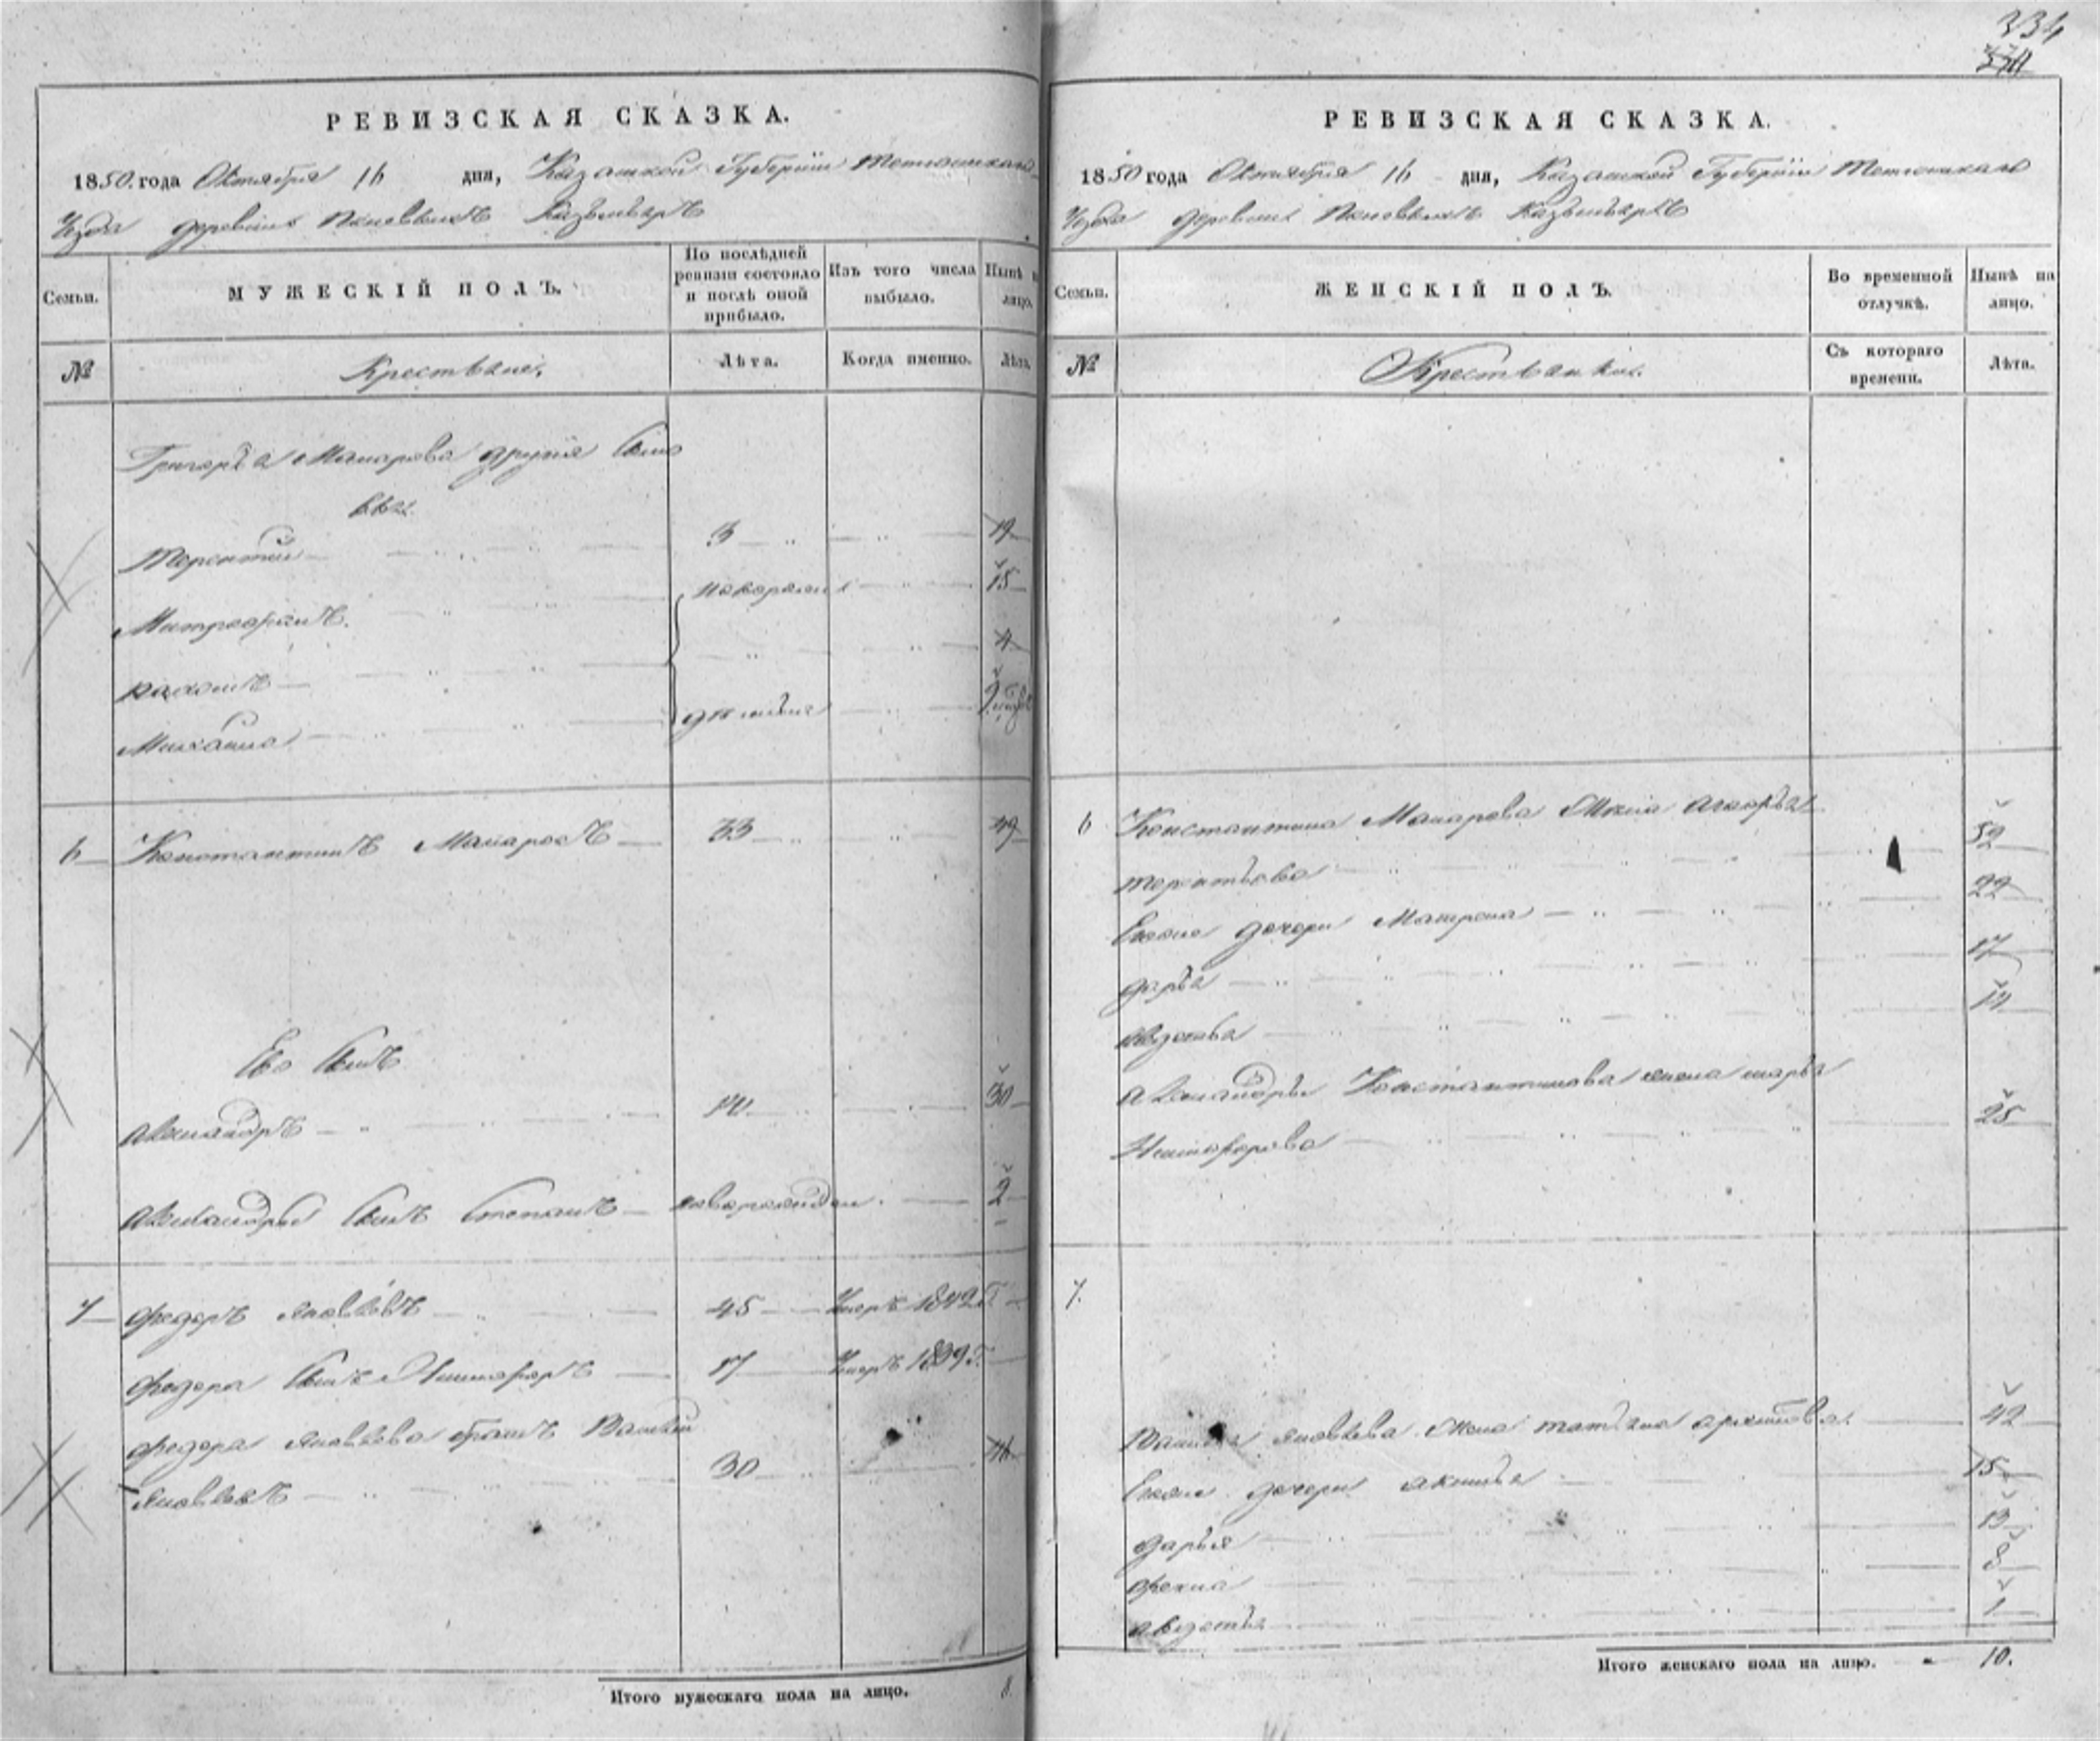 334
РЕВИЗСКАЯ СКАЗКА.
1850. года Октября 16 дня, Казанской Губернiи Тетюшскаго
Уѣзда деревни
Семьи.
МУЖЕСКІЙ ПОЛЪ.
По послѣдней ревизіи состояло и послѣ оной прибыло.
Изъ того числа выбыло.
Нынѣ на лицо.
№
Крестьяне.
Лѣта.
Когда именно.
Лѣта.
Григорья Макарова другiе сыно
вья
Терентiй 3 19
Митрофанъ новорожден 15
Пахомъ 4
Михайла
6 Константинъ Макаровъ 33 49
Его сынъ
Александръ 14 30
Александры сынъ Степанъ новорожден. 2
7 Федоръ Яковлевъ 45 Умеръ 1842 Г.
Федора сынъ Никифоръ 17 Умеръ 1839 Г.
Федора Яковлева братъ Василiй
Яковлевъ 30 46
Итого мужескаго пола на лицо. 8.
РЕВИЗСКАЯ СКАЗКА.
1850 года Октября 16 дня, Казанской Губернiи Тетюшскаго
Уѣзда деревни
Семьи.
ЖЕНСКІЙ ПОЛЪ.
Во временной отлучкѣ.
Нынѣ на лицо.
№
Крестьянки.
Съ котораго времени.
Лѣта.
6 Константина Макарова жена
Терентьева 52
Ихъ дочери Матрена 22
Дарья 17
Авдотья 12
Александры Константинова жена Марья
Никифорова 25
7.
Василья Яковлева жена Татьяна Архипова 42
Ихъ дочери Аксинья 15
Дарья 13
Фекла 8
Авдотья 1
Итого женскаго пола на лицо. 10.